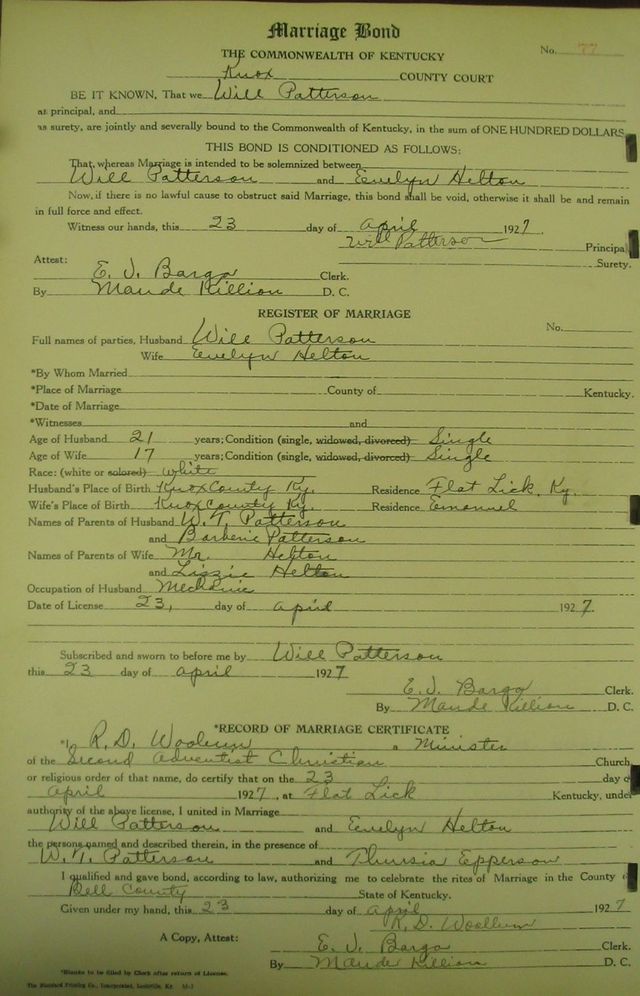 Marriage Bond
THE COMMONWEALTH OF KENTUCKY
No. 77
Knox COUNTY COURT
BE IT KNOWN, That we Will Patterson
as principal, and
as surety, are jointly and severally bound to the Commonwealth of Kentucky, in the sum of ONE HUNDRED DOLLARS
THIS BOND IS CONDITIONED AS FOLLOWS:
That, whereas Marriage is intended to be solemnized between
Will Patterson and Evelyn Helton
Now, if there is no lawful cause to obstruct said Marriage, this bond shall be void, otherwise it shall be and remain
in full force and effect.
Witness our hands, this 23 day of april 1927.
Will Patterson Principal
Surety.
Attest:
E. J. Bargo Clerk.
By Maude Killion D. C.
REGISTER OF MARRIAGE
No.
Full names of parties, Husband Will Patterson
Wife Evelyn Helton
*By Whom Married
*Place of Marriage County of Kentucky.
*Date of Marriage
*Witnesses and
Age of Husband 21 years; Condition (single, widowed, divorced) Single
Age of Wife 17 years; Condition (single, widowed, divorced) Single
Race: (white or colored) white
Husband's Place of Birth Knox County Ky. Residence Flat Lick, Ky.
Wife's Place of Birth Knox County Ky. Residence Emanuel
Names of Parents of Husband W. T. Patterson
and Patterson
Names of Parents of Wife Mr. Helton
and Lizzie Helton
Occupation of Husband
Date of License 23, day of april 1927.
Subscribed and sworn to before me by Will Patterson
this 23 day of april 1927
E. J. Bargo Clerk.
By Maude Killion D. C.
*RECORD OF MARRIAGE CERTIFICATE
*I, R. D. Woollum a Minister
of the Second Adventist Christian Church
or religious order of that name, do certify that on the 23 day of
april 1927, at Flat Lick Kentucky, under
authority of the above license, I united in Marriage
Will Patterson and Evelyn Helton
the persons named and described therein, in the presence of
W. T. Patterson and Epperson
I qualified and gave bond, according to law, authorizing me to celebrate the rites of Marriage in the County of
Bell County State of Kentucky.
Given under my hand, this 23 day of april 1927
R. D. Woollum
A Copy, Attest:
E. J. Bargo Clerk.
By Maude Killion D. C.
*Blanks to be filled by Clerk after return of License.
The Standard Printing Co., Incorporated, Louisville, Ky.